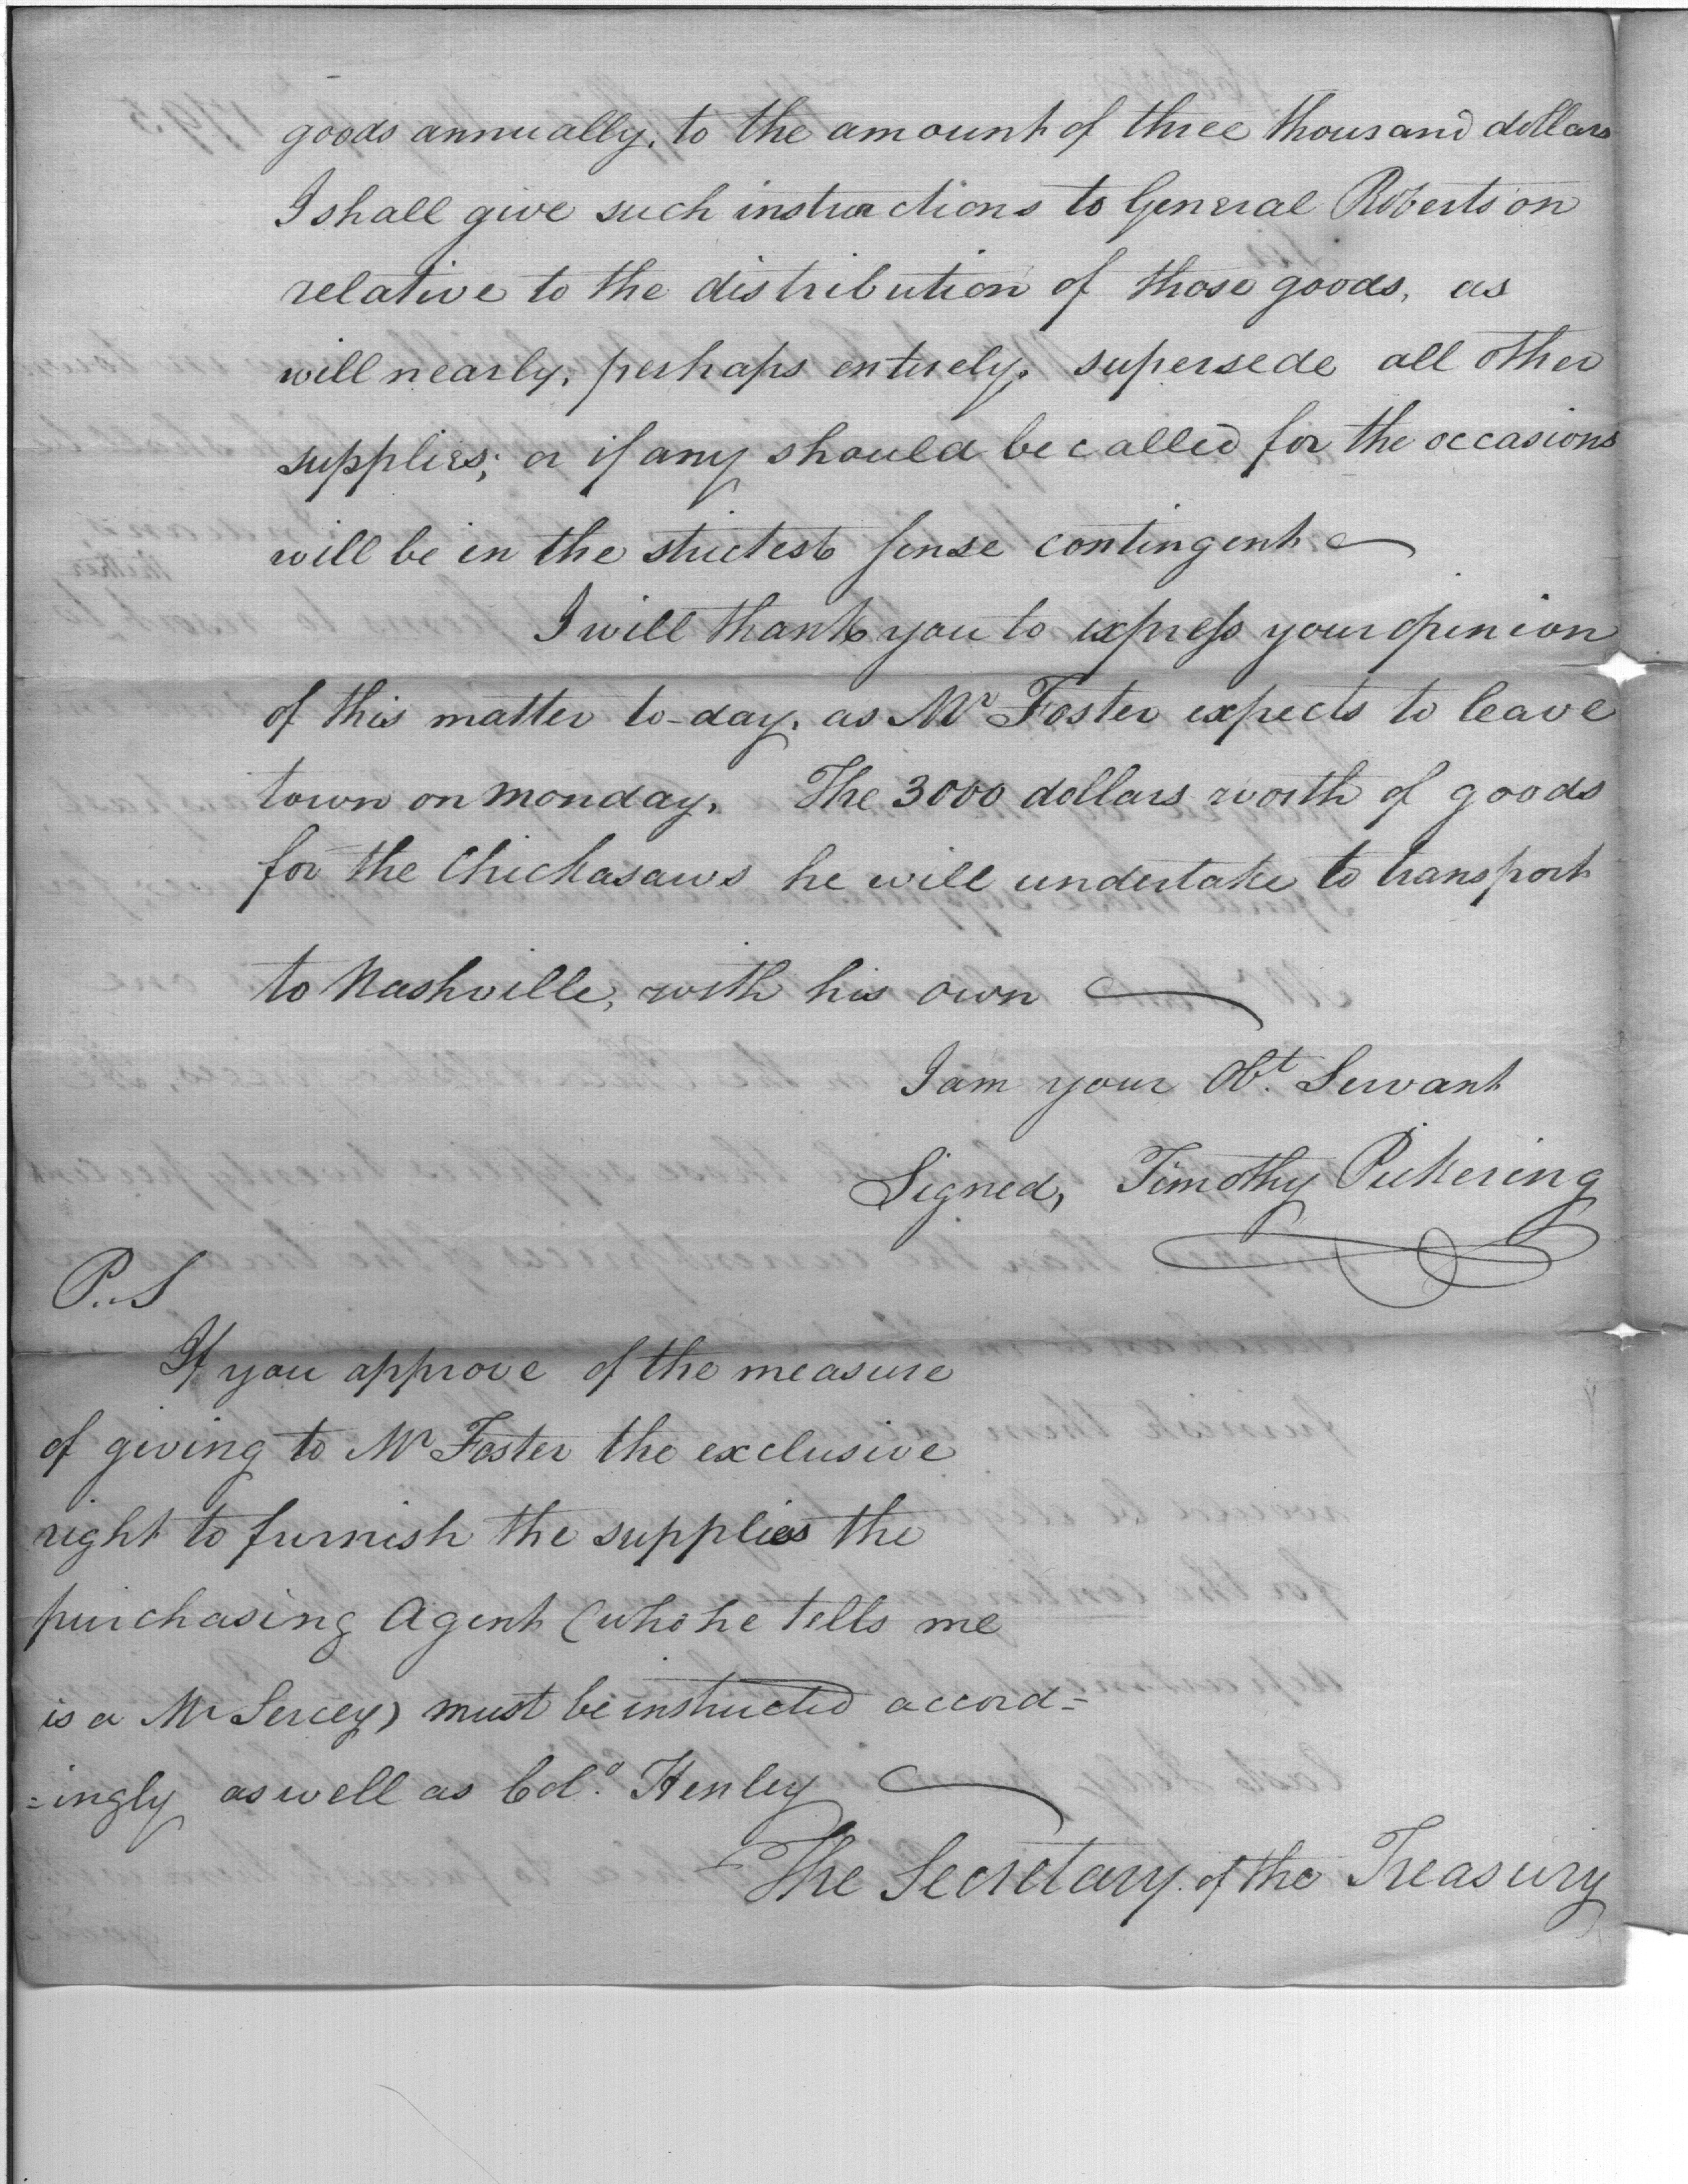 goods annually, to the amount of three thousand dollars
I shall give such instructions to General Robertson
relative to the distribution of those goods, as
will nearly, perhaps entirely, supersede all other
supplies; or if any should be called for the occasions
will be in the strictest sense contingent
I will thank you to express your opinion
of this matter to-day, as Mr Foster expects to leave
town on monday, The 3000 dollars worth of goods
for the Chickasaws he will undertake to transport
to Nashville, with his own
I am your Obt. Servant
Signed, Timothy Pickering
P.S
If you approve of the measure
of giving to Mr Foster the exclusive
right to furnish the supplies the
purchasing Agent (who he tells me
is a Mr Sercey) must be instructed accord=
=ingly as well as Colo. Henley
The Secretary of the Treasury